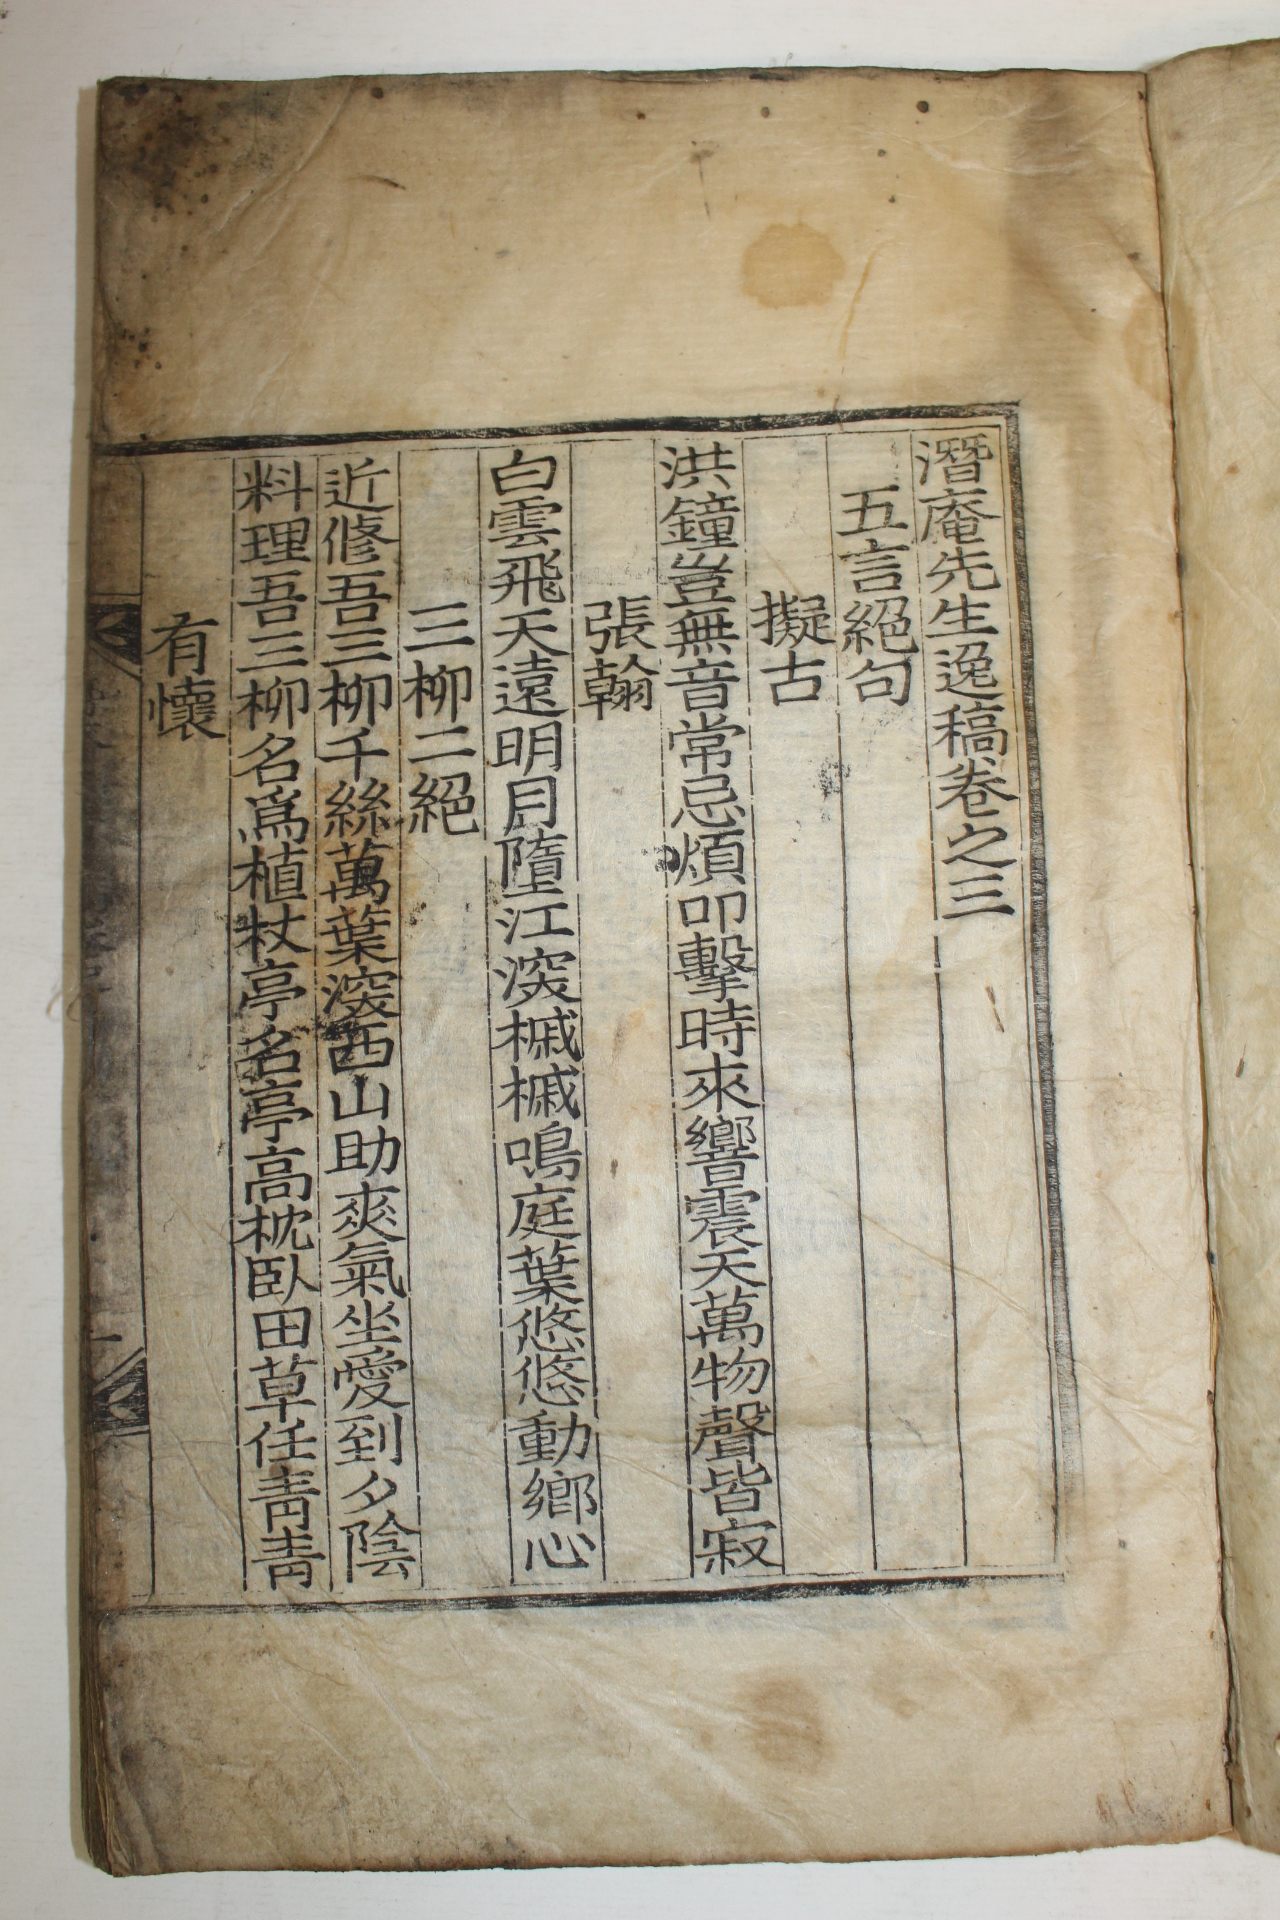 潛庵先生逸稿卷之三
五言絕句
擬古
洪鐘豈無音常忌煩叩擊時來響震天萬物聲皆寂
張翰
白雲飛天遠明月墮江深槭槭鳴庭葉悠悠動鄉心
三柳二絕
近修吾三柳千絲萬葉深西山助爽氣坐愛到夕陰
料理吾三柳名爲植杖亭名亭亭高枕臥田草任靑靑
有懷